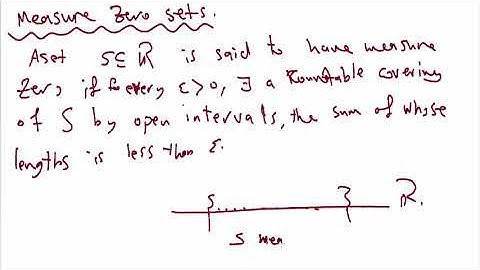 Measure Zero sets.
A set S⊆ℝ is said to have measure
Zero, if for every ε>0, ∃ a Countable covering
of S by open intervals, the sum of whose
lengths is less than ε.
ℝ.
S mea